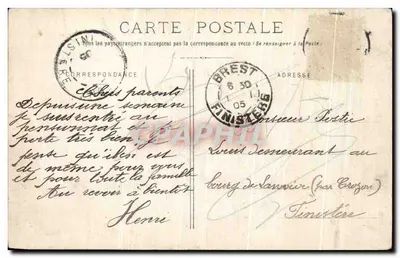 CARTE POSTALE
Tous les pays étrangers n'acceptent pas la correspondance au recto (Se renseigner à la Poste).
CORRESPONDANCE
ADRESSE
FINISTERE
BREST
6 30
05
FINISTERE
Chers parents
Depuis une semaine
je suis rentré au
pensionnat
porte très bien je
pense qu'il en est
de même pour vous
et pour toute la famille
Au revoir à bientôt
Henri
Monsieur
Louis demeurant au
bourg de Lanvéoc (par Crozon)
Finistère